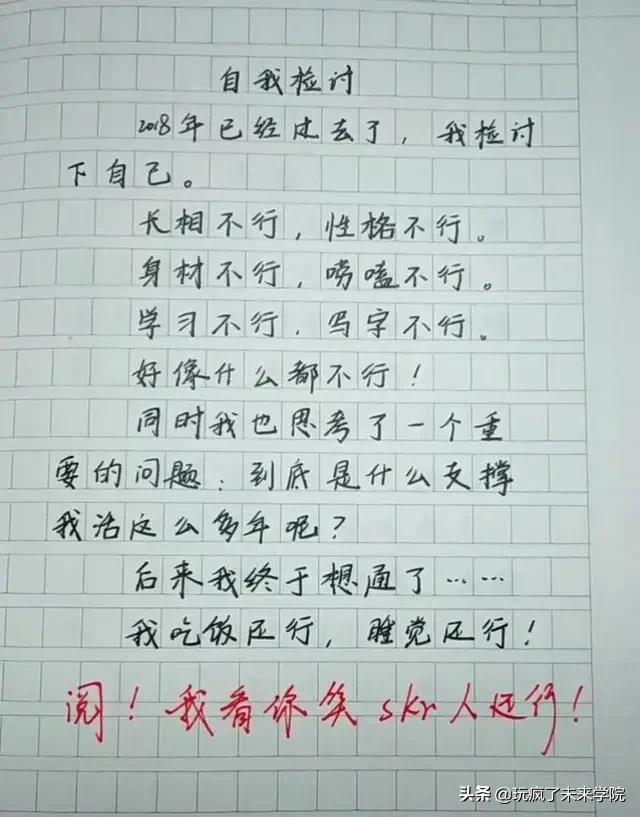 自我检讨
2018年已经过去了，我检讨
下自己。
长相不行，性格不行。
身材不行，唠嗑不行。
学习不行，写字不行。
好像什么都不行！
同时我也思考了一个重
要的问题：到底是什么支撑
我活这么多年呢？
后来我终于想通了……
我吃饭还行，睡觉还行！
阅！我看你笑skr人还行！
头条 @玩疯了未来学院